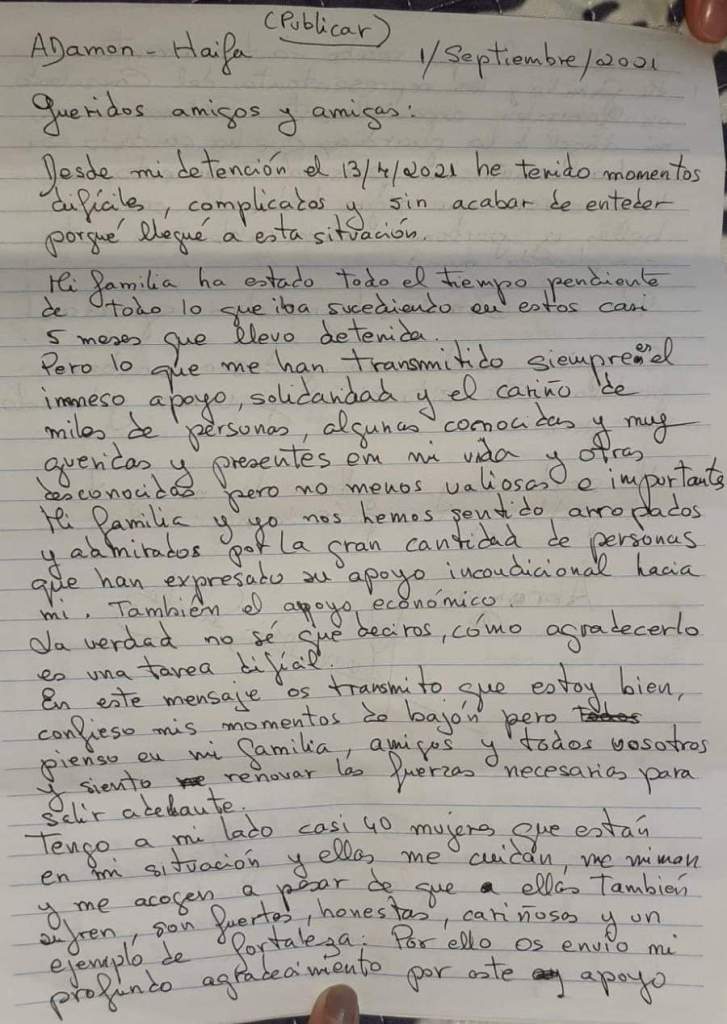 (Publicar)
ADamon - Haifa 1/Septiembre/2021
Queridos amigos y amigas:
Desde mi detención el 13/4/2021 he tenido momentos
difíciles, complicados y sin acabar de enteder
porqué llegué a esta situación.
Mi familia ha estado todo el tiempo pendiente
de todo lo que iba sucediendo en estos casi
5 meses que llevo detenida.
Pero lo que me han transmitido siempre es el
immeso apoyo, solidaridad y el cariño de
miles de personas, algunas conocidas y muy
queridas y presentes em mi vida y otras
desconocidas pero no menos valiosas e importants
Mi familia y yo nos hemos sentido arropados
y admirados por la gran cantidad de personas
que han expresado su apoyo incondicional hacia
mi. También el apoyo económico.
La verdad no sé que deciros, cómo agradecerlo
es una tarea difícil.
En este mensaje os transmito que estoy bien,
confieso mis momentos de bajón pero
pienso en mi familia, amigos y todos vosotros
y siento renovar las fuerzas necesarias para
salir adelante.
Tengo a mi lado casi 40 mujeres que están
en mi situación y ellas me cuidan, me miman
y me acogen a pesar de que a ellas también
sufren, son fuertes, honestas, cariñosas y un
ejemplo de fortaleza. Por ello os envío mi
profundo agradecimiento por este apoyo